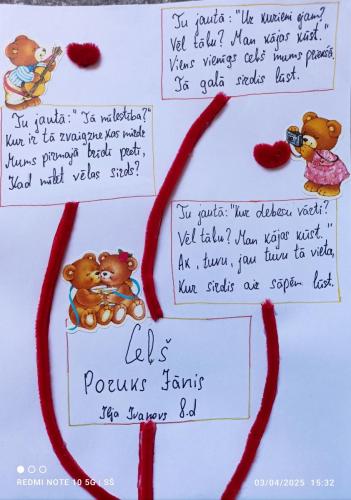 Tu jautā: "Uz kurieni ejam?
Vēl tālu? Man kājas kūst."
Viens vienīgs ceļš mums priekšā,
Tā galā sirdis lūst.
Tu jautā: "Tā mīlestība?"
Kur ir tā zvaigzne, kas mirdz
Mums pirmajā brīdī pretī,
Kad mīlēt vēlas sirds?
Tu jautā: "Kur debesu vārti?
Vēl tālu? Man kājas kūst."
Ak, tuvu, jau tuvu tā vieta,
Kur sirdis aiz sāpēm lūst.
Ceļš
Poruks Jānis
Iļja Ivanovs 8.d
REDMI NOTE 10 5G | SŠ
03/04/2025 15:32